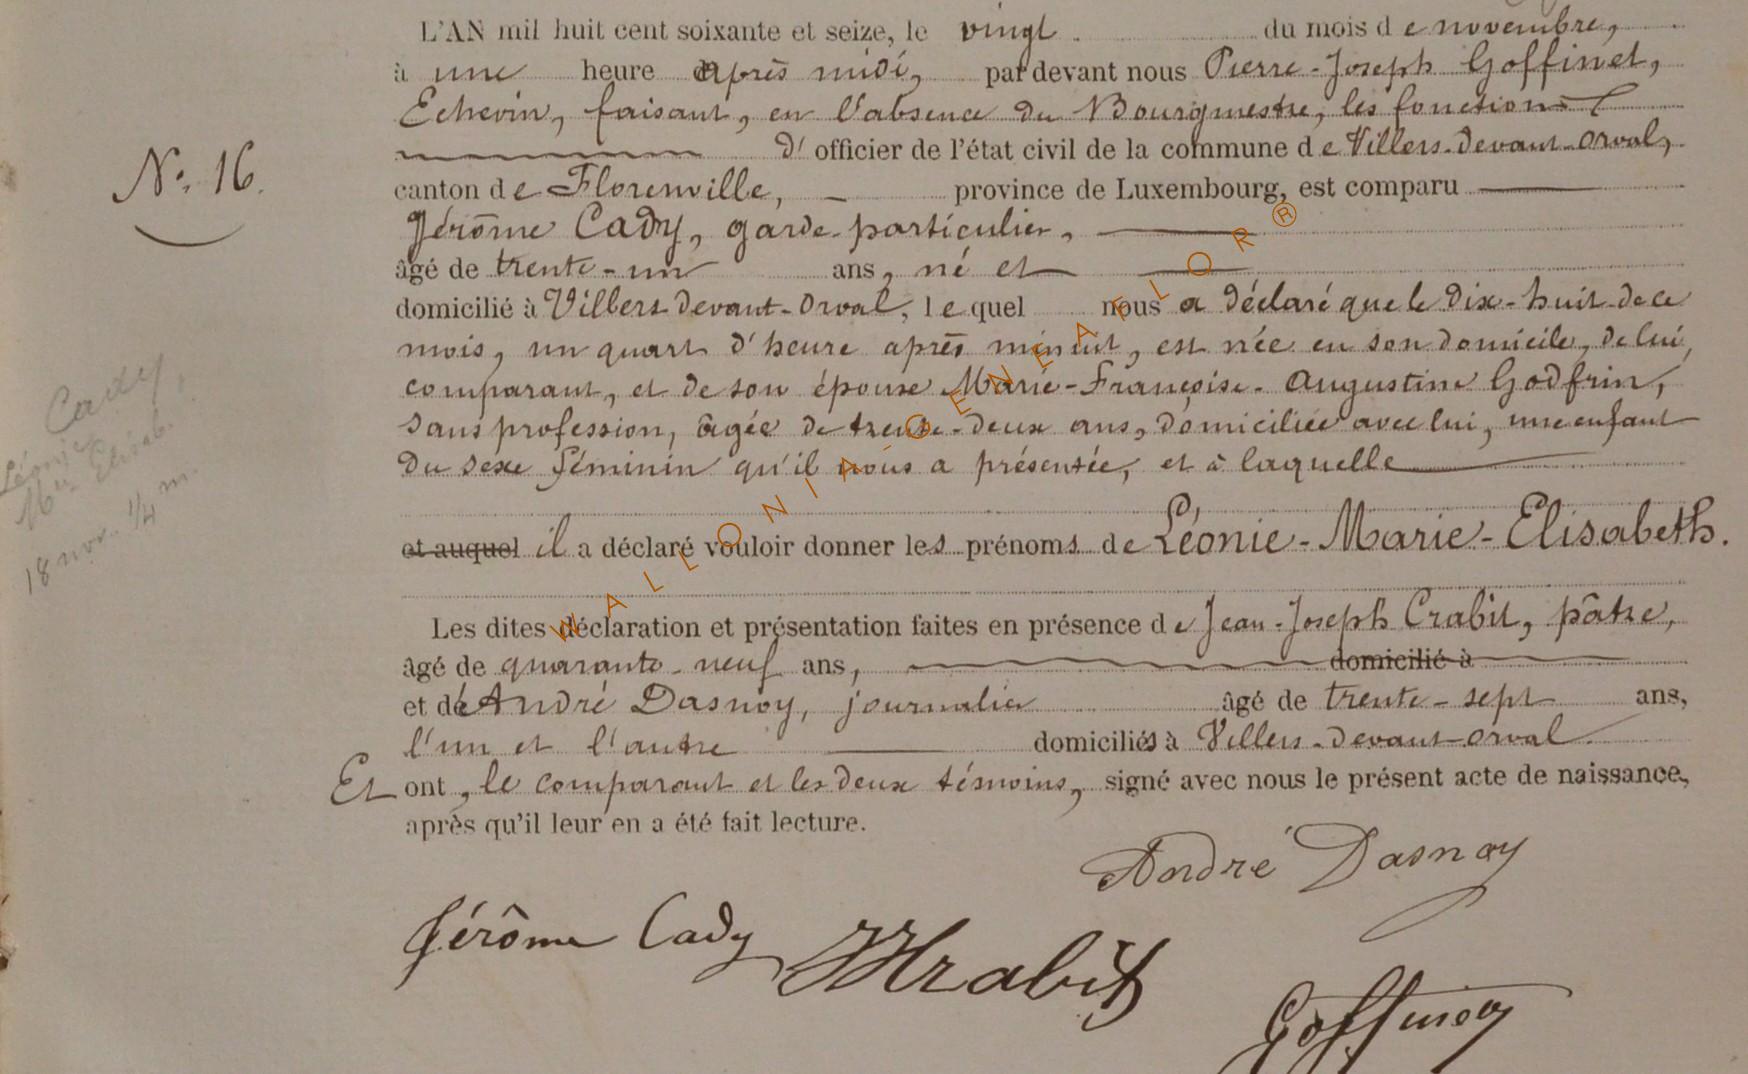 L'AN mil huit cent soixante et seize, le vingt du mois de novembre,
à une heure après midi, par devant nous Pierre-Joseph Goffinet,
Echevin, faisant, en l'absence du Bourgmestre, les fonctions
d'officier de l'état civil de la commune de Villers-devant-Orval,
N° 16.
canton de Florenville, province de Luxembourg, est comparu
Jérôme Cady, garde-particulier,
âgé de trente-un ans, né et
domicilié à Villers devant-Orval, lequel nous a déclaré que le dix-huit de ce
mois, un quart d'heure après minuit, est née en son domicile, de lui,
comparant, et de son épouse Marie-Françoise-Augustine Godfrin,
sans profession, âgée de trente-deux ans, domiciliée avec lui, une enfant
du sexe féminin qu'il nous a présentée, et à laquelle
et auquel il a déclaré vouloir donner les prénoms de Léonie-Marie-Elisabeth.
Les dites déclaration et présentation faites en présence de Jean-Joseph Crabit, pâtre,
âgé de quarante-neuf ans, domicilié à
et de André Dasnoy, journalier âgé de trente-sept ans,
l'un et l'autre domiciliés à Villers-devant-Orval.
Et ont, le comparant et les deux témoins, signé avec nous le présent acte de naissance,
après qu'il leur en a été fait lecture.
Cady,
Léonie
Mie Elisab.
18 nov. 1/4 m.
André Dasnoy
Jérôme Cady JJCrabit
Goffinet
WALLONIA-GENEAFLOR®